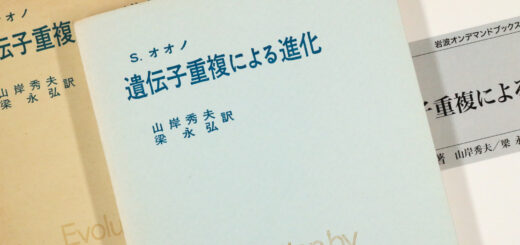 S. オオノ
遺伝子重複による進化
山岸秀夫
梁永弘訳
Evolu
by
オオノ
伝子重複
山岸秀
梁永
岩波オンデマンドブックス
子重複によ
著 山岸秀夫／梁